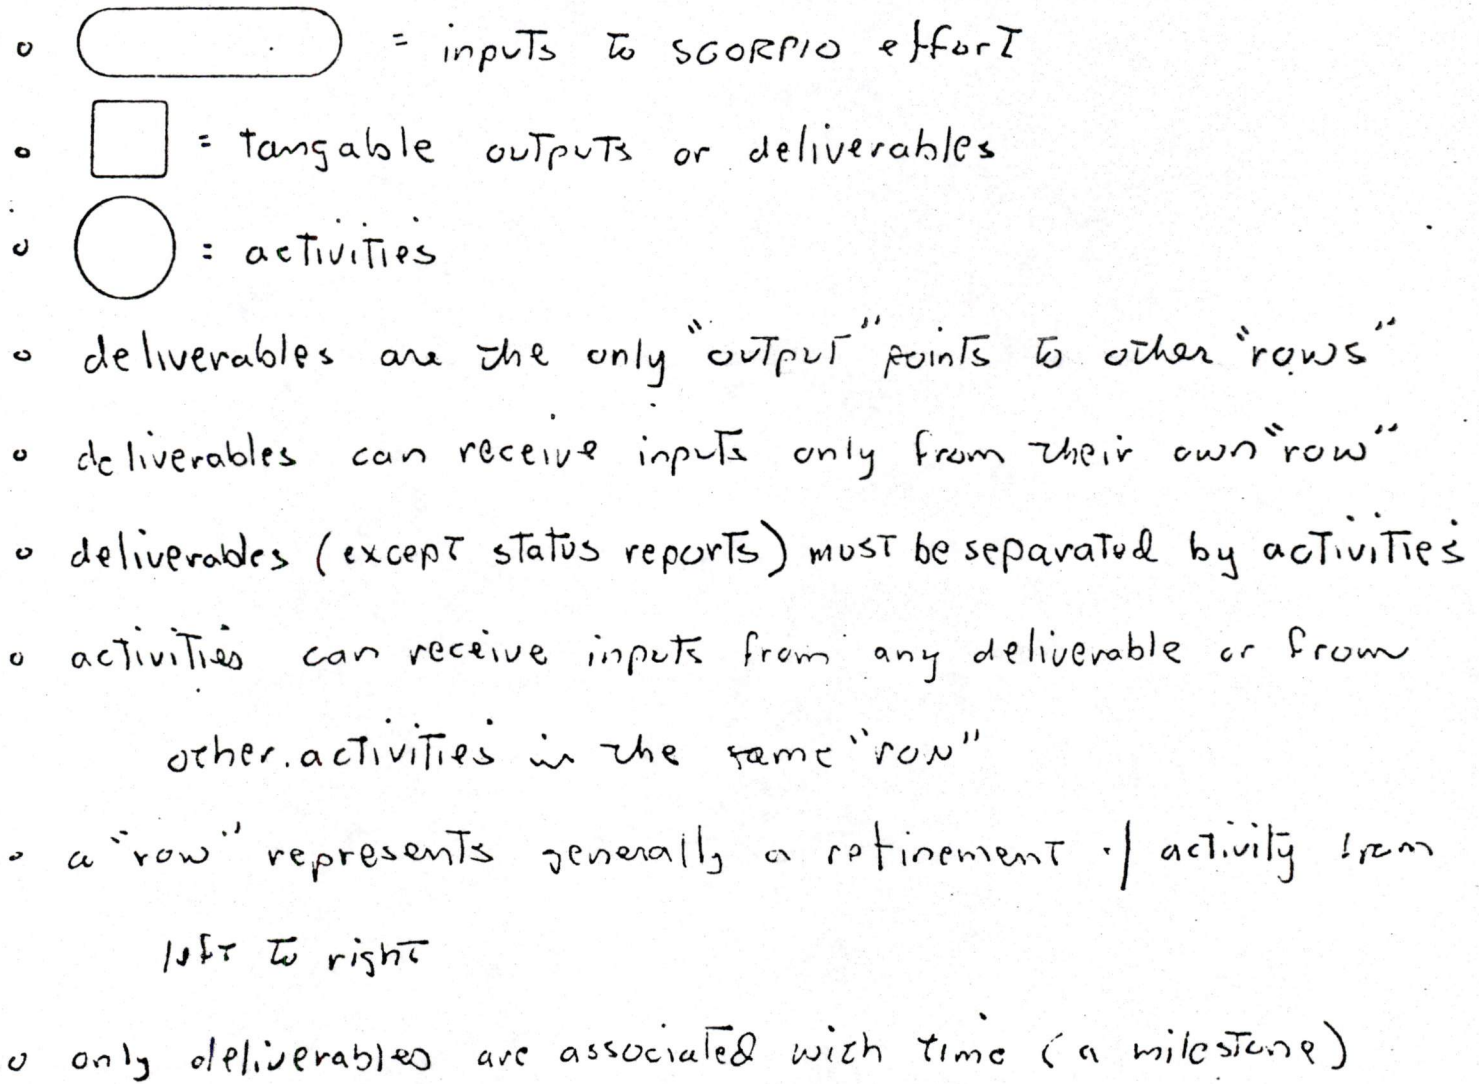 o = inputs to SCORPIO effort
o = tangable outputs or deliverables
o = activities
o deliverables are the only "output" points to other "rows"
o deliverables can receive inputs only from their own "row"
o deliverables (except status reports) must be separated by activities
o activities can receive inputs from any deliverable or from
other activities in the same "row"
o a "row" represents generally a refinement of activity from
left to right
o only deliverables are associated with time (a milestone)